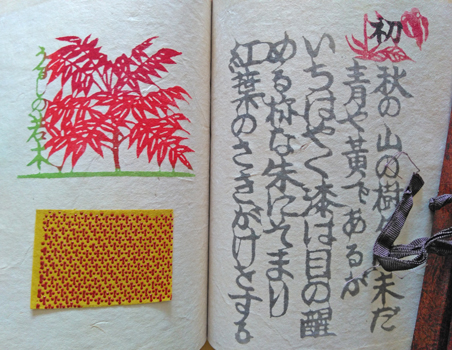 初秋の山の樹 未だ
青や黄であるが
いちはやく漆は目の醒
める様な朱にそまり
紅葉のさきがけとする
うるしの若木